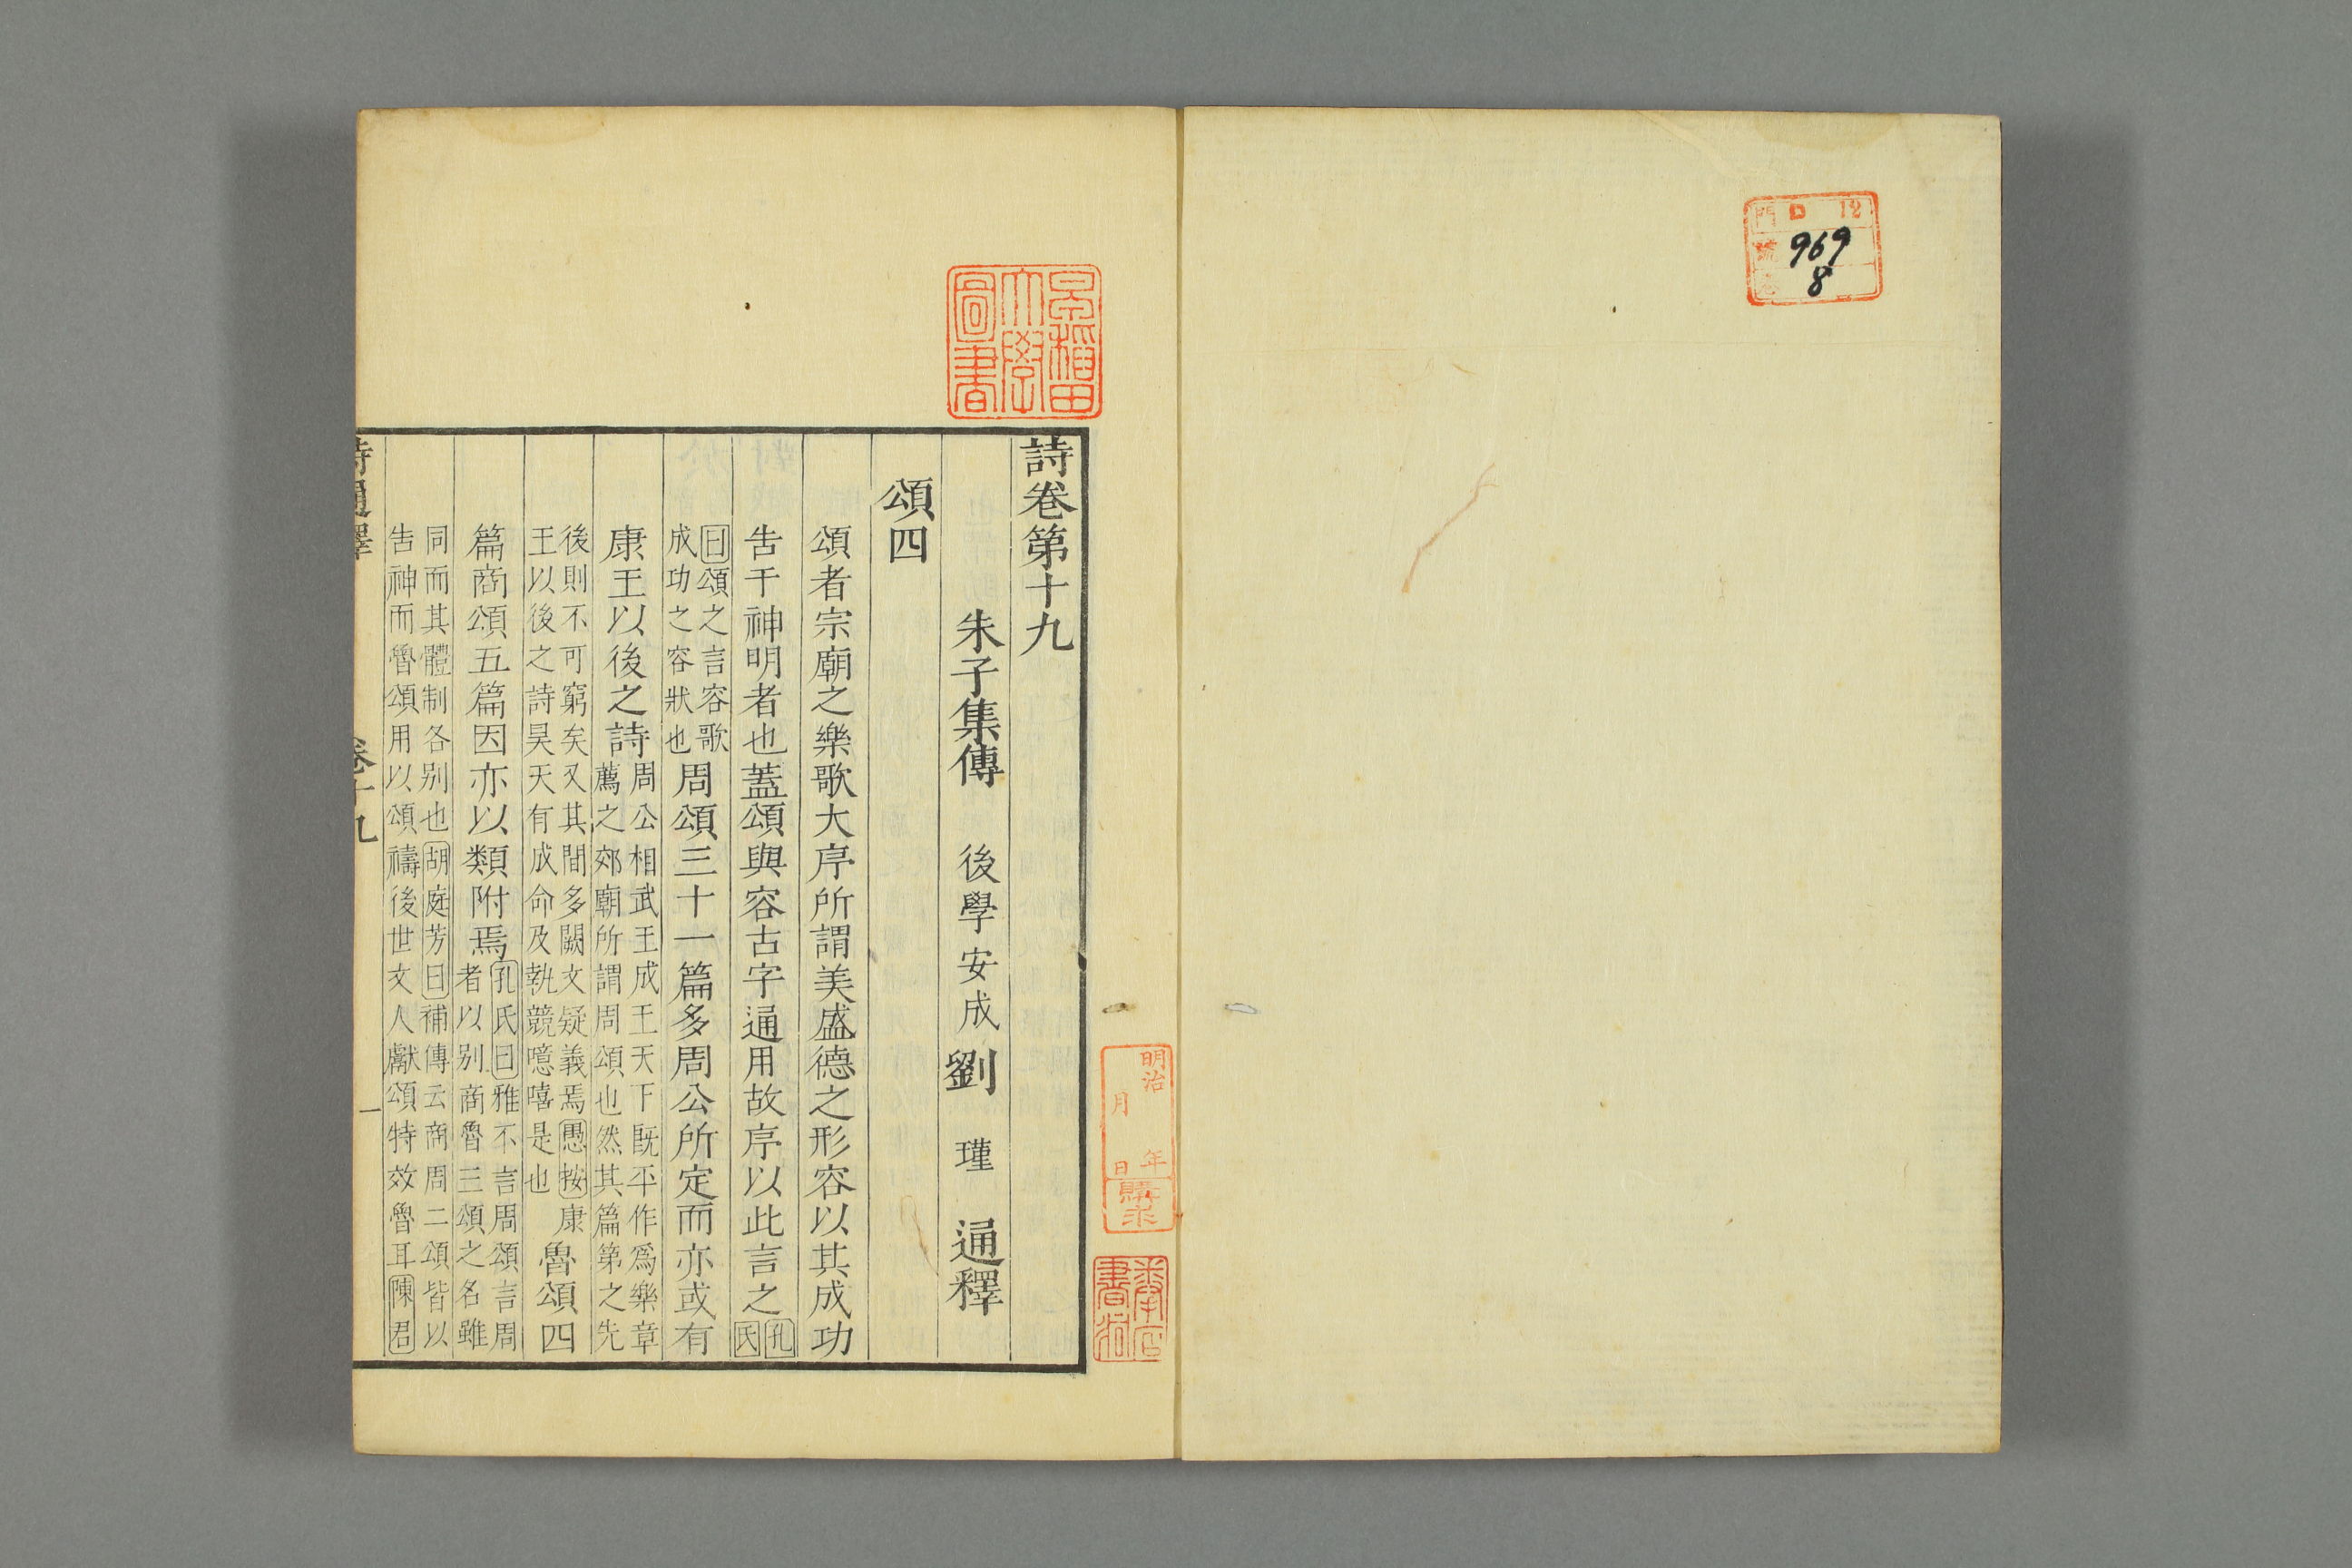 門 12
969
8
早稻田
大學
圖書
明治 年
月 日
購求
詩卷第十九
朱子集傳 後學安成劉 瑾 通釋
頌四
頌者宗廟之樂歌大序所謂美盛德之形容以其成功
告于神明者也蓋頌與容古字通用故序以此言之孔氏
曰頌之言容歌成功之容狀也周頌三十一篇多周公所定而亦或有
康王以後之詩周公相武王成王天下既平作爲樂章薦之郊廟所謂周頌也然其篇第之先
後則不可窮矣又其間多闕文疑義焉愚按康王以後之詩昊天有成命及執競噫嘻是也魯頌四
篇商頌五篇因亦以類附焉孔氏曰雅不言周頌言周者以别商魯三頌之名雖
同而其體制各别也胡庭芳曰補傳云商周二頌皆以告神而魯頌用以頌禱後世文人獻頌特效魯耳陳君
詩通釋 卷十九 一